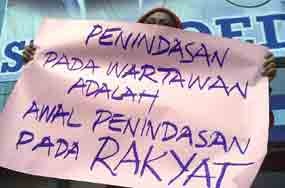 PENINDASAN
PADA WARTAWAN
ADALAH
AWAL PENINDASAN
PADA RAKYAT